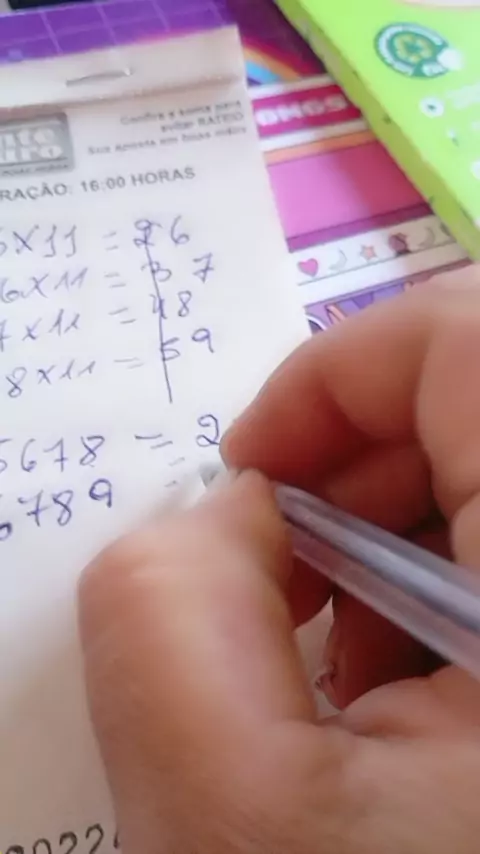 Confira a soma para
evitar RATEIO
Sua aposta em boas mãos
RAÇÃO: 16:00 HORAS
5x11 = 26
6x11 = 37
7x11 = 48
8x11 = 59
5678 = 2
6789 =